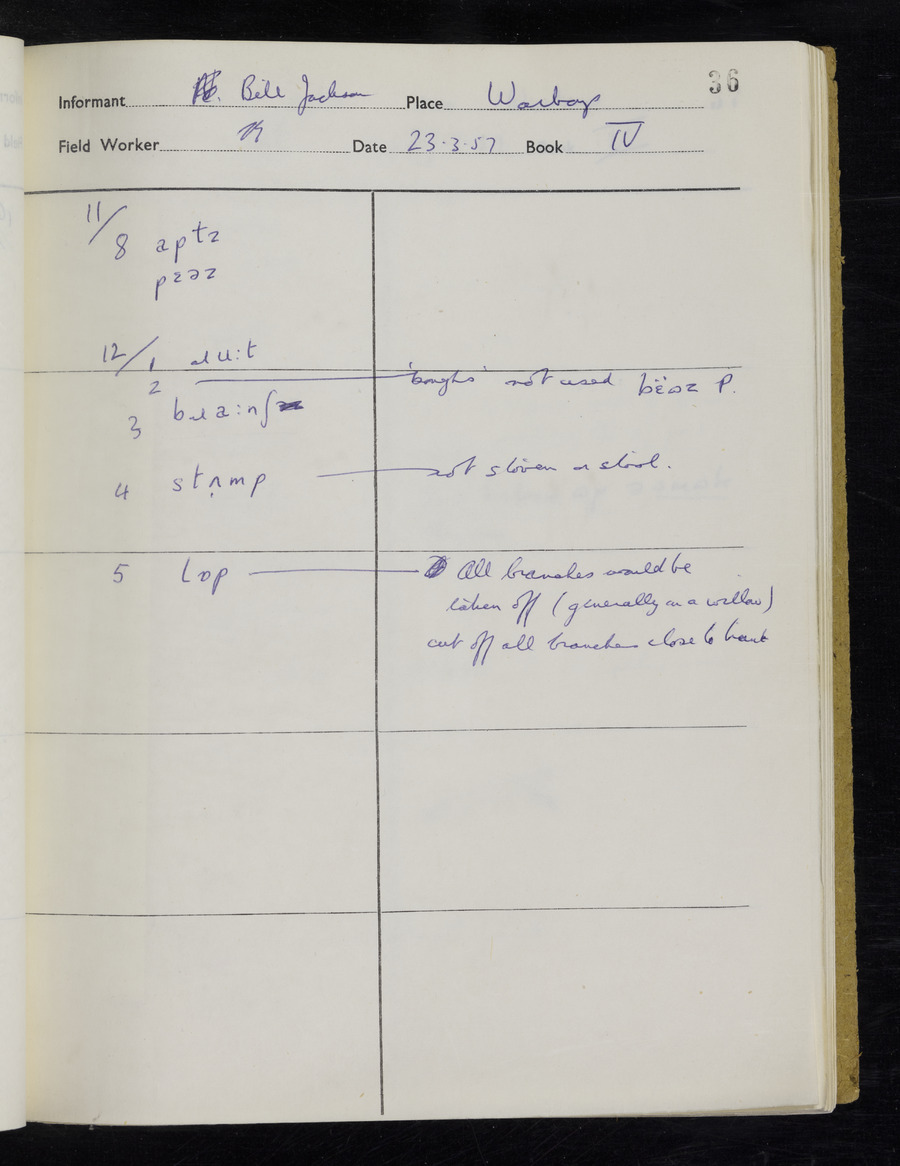 36
Informant Bill Jackson Place Warboys
Field Worker Date 23.3.57 Book IV
11/
8 aptz
pɛəz
12/
1 ɹuːt
2 'boughs' not used bëəz P.
3 bɹaːnʃ
4 stʌ̣mp not stoven or stool.
5 lɒp All branches would be
taken off (generally on a willow)
cut off all branches close to trunk